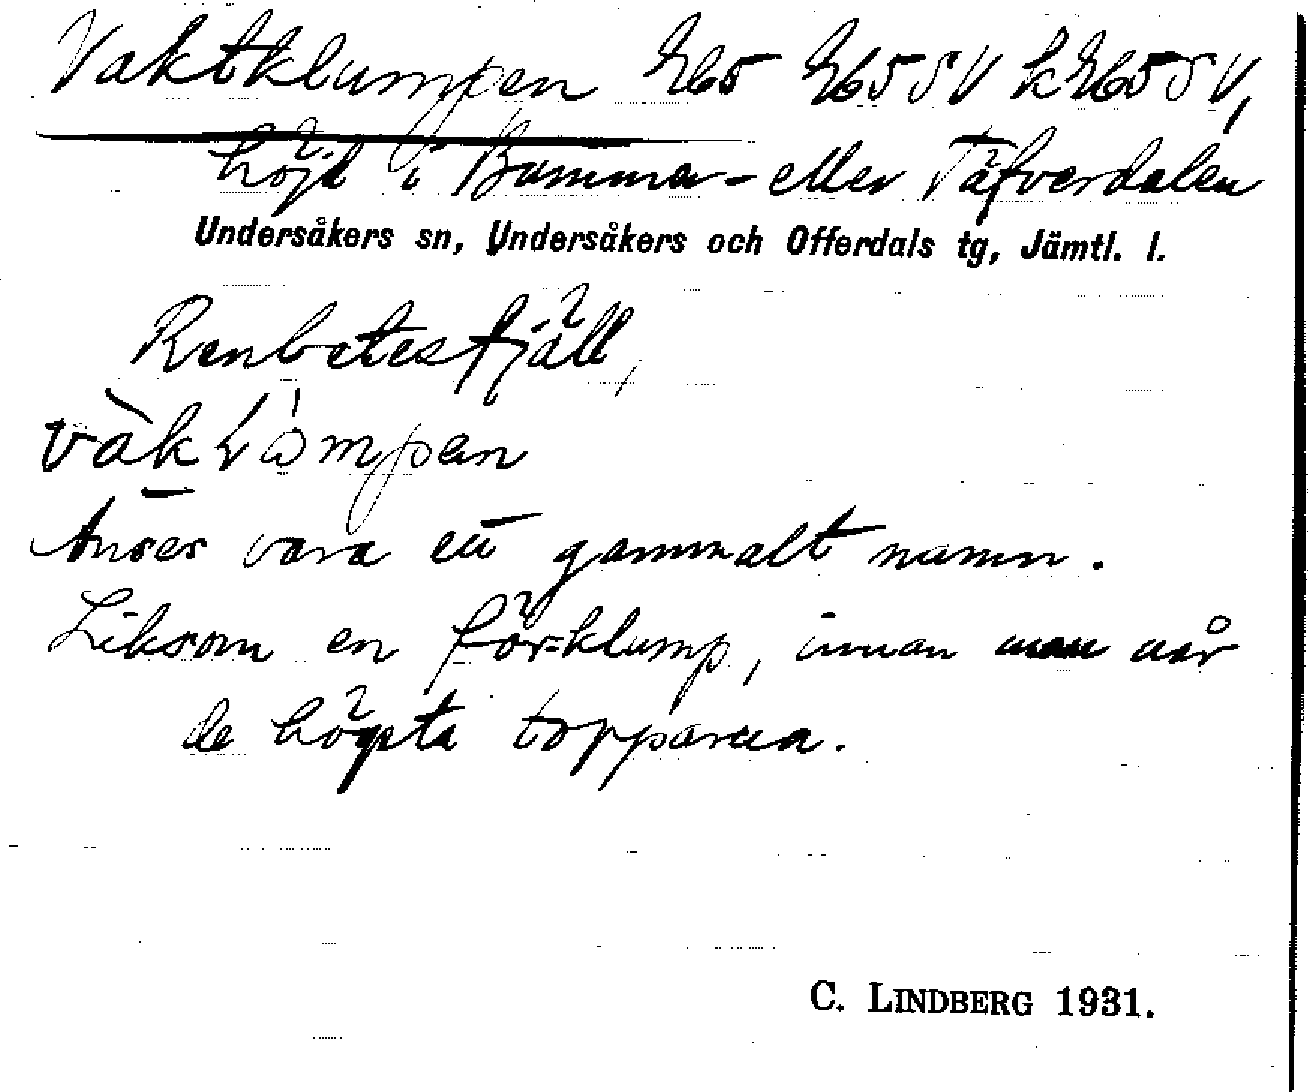 Vaktklumpen
höjd i Bumma- eller Täfverdalen
Undersåkers sn, Undersåkers och Offerdals tg, Jämtl. l.
Renbetesfjäll,
Anses vara ett gammalt namn.
Liksom en för-klump, innan man når
de högsta topparna.
C. LINDBERG 1931.